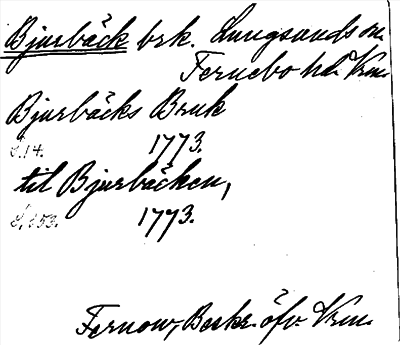 Bjurbäck brk. Lungsunds sn.
Fernebo hd. Vrm.
Bjurbäcks Bruk
S. 14. 1773.
til Bjurbäcken,
S. 153. 1773.
Fernow, Beskr. öfv. Vrm.